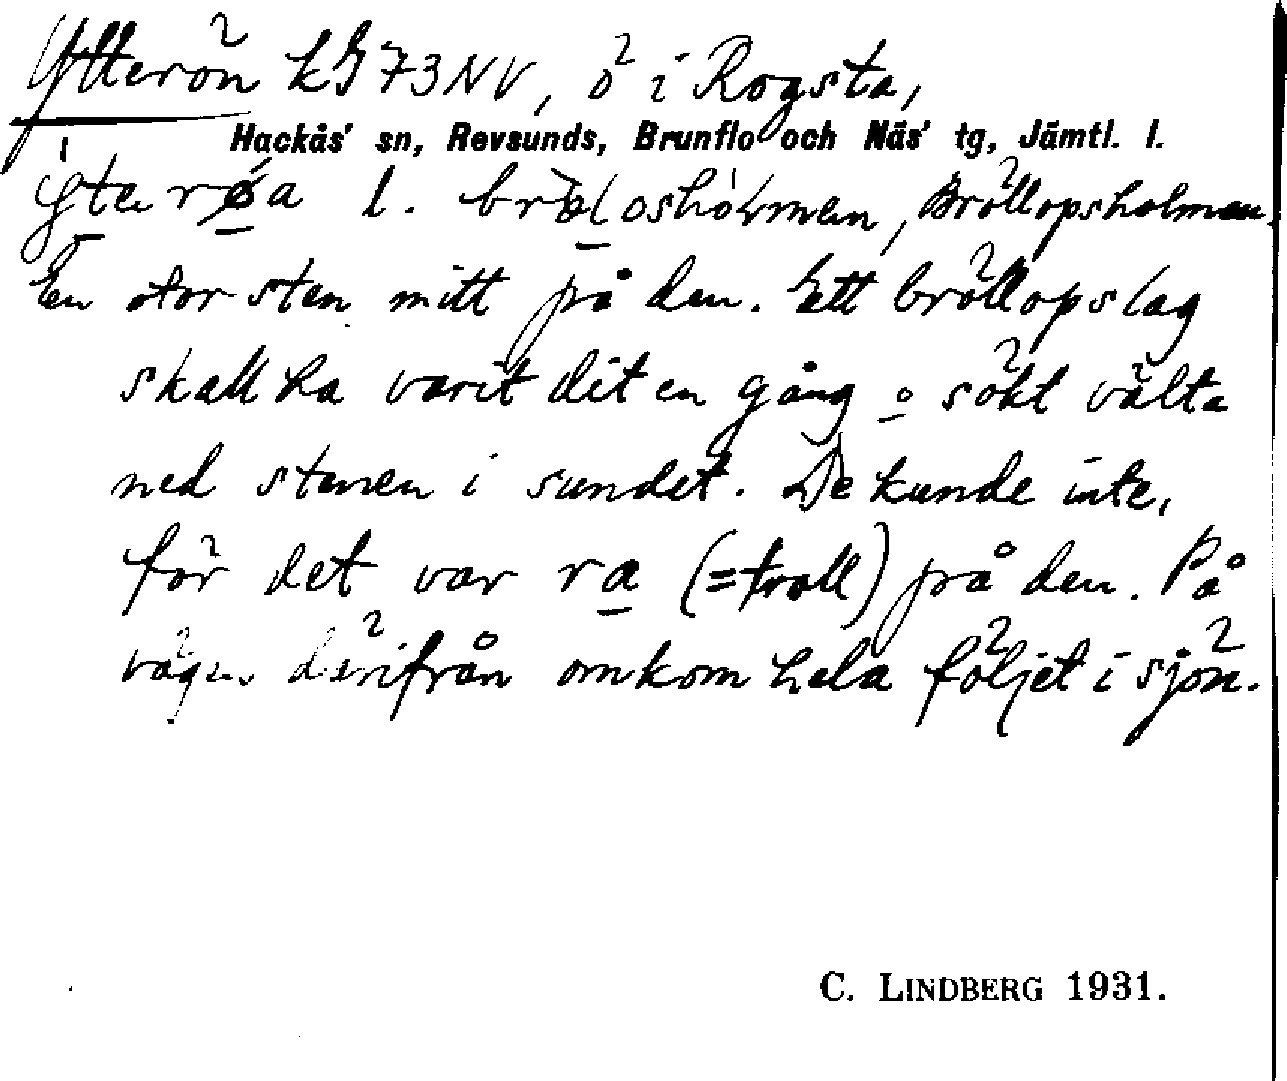 Ytterön kG73NV, ö i Rogsta,
Hackås' sn, Revsunds, Brunflo och Näs' tg, Jämtl. l.
l. Bröllopsholmen.
En stor sten mitt på den. Ett bröllopslag
skall ha varit dit en gång o sökt välta
ned stenen i sundet. De kunde inte,
för det var ra (=troll) på den. På
vägen därifrån omkom hela följet i sjön.
C. LINDBERG 1931.